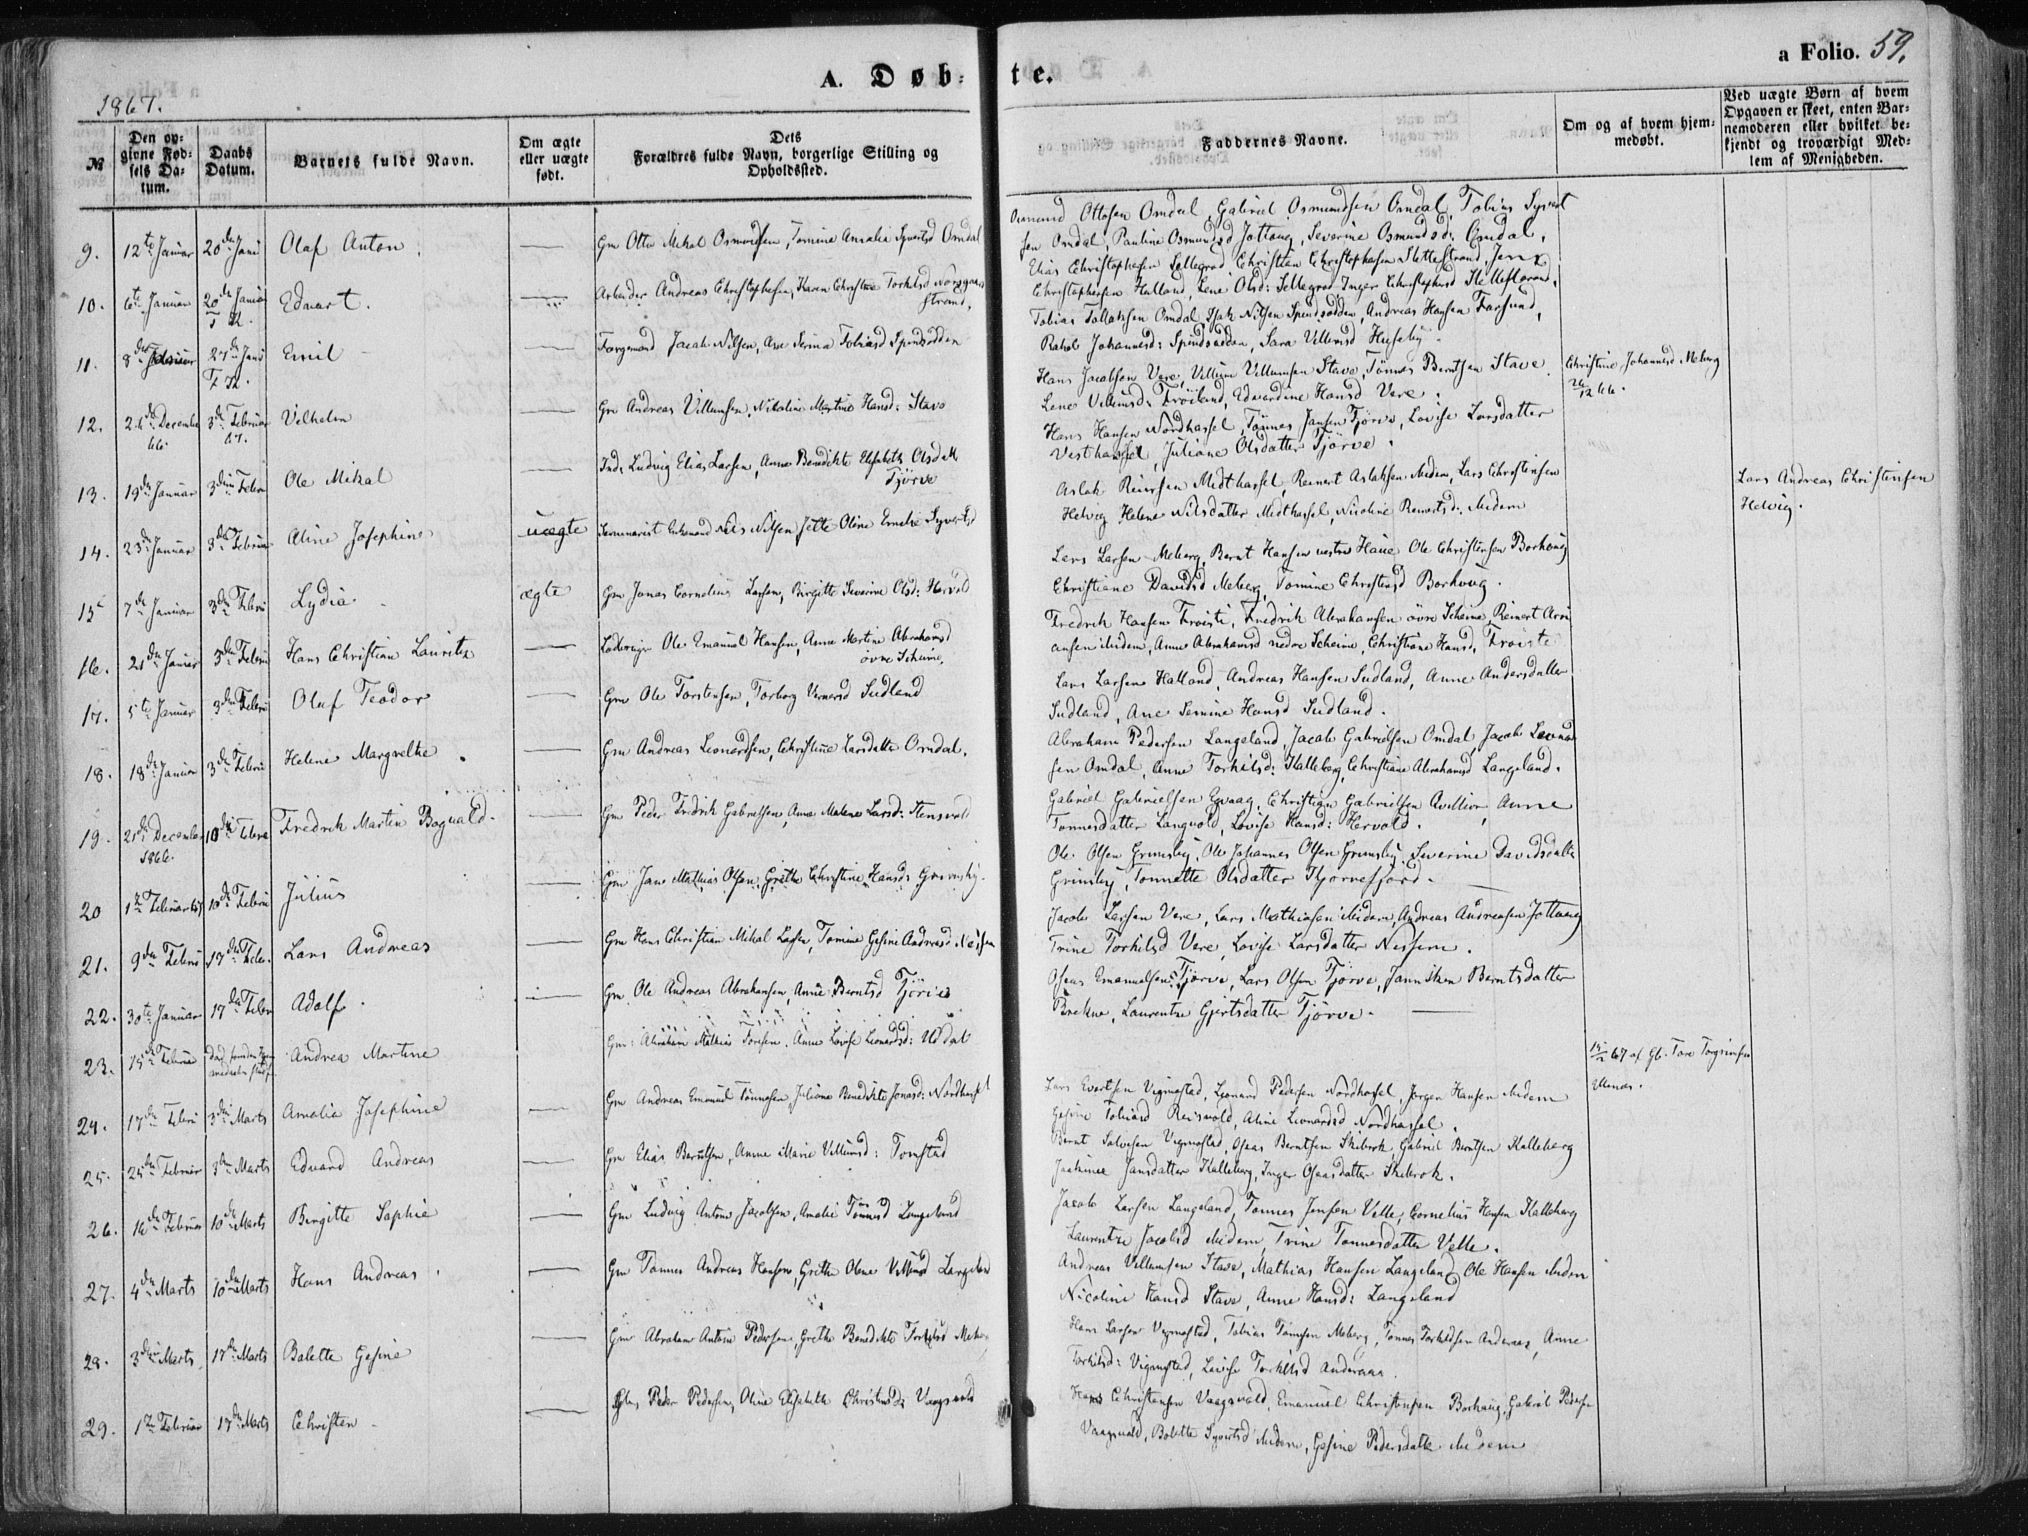 1867.
A. Døb-
te.
a Folio. 59.
№
Den op-
givne Fød-
sels Da-
tum.
Daabs
Datum.
Barnets fulde Navn.
Om ægte
eller uægte
født.
Dets
Forældres fulde Navn, borgerlige Stilling og
Opholdssted.
Faddernes Navne.
Om og af hvem hjem-
medøbt.
Ved uægte Børn af hvem
Opgaven er skeet, enten Bar-
nemoderen eller hvilket be-
kjendt og troværdigt Med-
lem af Menigheden.
9. 12te Januar 20de Janu Olaf Anton. — Gm Otto Mikal Osmundsen, Tomine Amalia Syvertsd Omdal
Osmund Ottosen Omdal, Gabriel Osmundsen Omdal, Tobias Syvert
sen Omdal, Pauline Osmundsd Jøllaug, Severine Osmundsd: Omdal,
10. 6te Januar 20de Januar Edvart. — Arbeider Andreas Christophersen, Karen Christine Torkelsd
strand,
Elias Christophersen Sellegrod, Christian Christophersen Slettestrand, Jens
Christophersen Halland, Lene Olsd: Sellegrod Inger Christophersd Slettestrand.
11. 8de 27de Janu Emil — Færgemand Jacob Nilsen, Ane Serina Tobiasd Spindsodden
Tobias Tollaksen Omdal, Isak Nilsen Spindsodden, Andreas Hansen Farsund,
Rakel Johannesd: Spindsodden, Sara Villumsd Huseby.
12. 26de December 3de Februar Vilhelm — Gm Andreas Villumsen, Nikoline Martine Hansd: Stave
66. 67.
Hans Jacobsen Vere, Villum Villumsen Stave, Tønnes Berntsen Stave
Lene Villumsd: Frøiland, Edvardine Hansd Vere.
Christine Johannesd Meberg
26/12 66.
13. 19de Januar 3die Febru Ole Mikal — Inds Ludvig Elias Larsen, Anne Benedikte Elisabeth Olsdatt
Tjørve
Hans Hansen Nordhassel, Tønnes Jansen Tjørve, Lovise Larsdatter
Vesthassel, Juliane Olsdatter Tjørve.
14. 23de Januar 3de Februar Aline Josephine uægte Seminarist Enkemand Nils Nilsen Jølle Oline Emelie Syvertsd
Aslak Reiersen Midthassel, Reinert Aslaksen Midem, Lars Christensen
Helvig Helene Nilsdatter Midthassel, Nicoline Reinertsd. Midem
Lars Andreas Christensen
Helvig.
15 7de Januar 3de Febru Lydia. ægte Gm Jonas Cornelius Larsen, Birgitte Severine Olsd: Hervold
Lars Larsen Meberg, Bernt Hansen vestre Haue Ole Christensen Borhaug
Christiane Davidsd Meberg, Tomine Christensd Borhaug.
16. 21de Januar 3de Febru Hans Christian Lauritz — Ole Emanuel Hansen, Anne Martine Abrahamsd
øvre Skeime,
Fredrik Hansen Frøiste, Fredrik Abrahamsen øvre Skeime, Reinert Arni
ansen Midem, Anne Abrahamsd nedre Skeime, Christiane Hansd, Frøiste
17. 5te Januar 3de Febru Oluf Teodor — Gm Ole Torstensen, Torborg Vernersd Sudland
Lars Larsen Halland, Andreas Hansen Sudland, Anne Andersdatter
Sudland, Ane Semine Hansd Sudland.
18. 18de Januar 3de Febru Helene Margrethe. — Gm Andreas Leonardsen, Christine Larsdatte Omdal.
Abraham Pedersen Langeland, Jacob Gabrielsen Omdal Jacob Leonard
sen Omdal, Anne Torkilsd: Kalleberg, Christiane Abrahamsd Langeland.
19. 21de December 10de Febru Fredrik Martin Boguald. — Gm Peder Fredrik Gabrielsen, Anne Malene Larsd:
1866.
Gabriel Gabrielsen Egvaag, Christian Gabrielsen, Anne
Tønnesdatter Langvold, Lovise Hansd: Hervold.
20 1te Februar 67 10de Febru Julius — Gm Jans Mathias Olsen, Grethe Christine Hansd: Grimsby.
Ole Olsen Grimsby, Ole Johannes Olsen Grimsby, Severine Davidsdatte
Grimsby, Tonnette Olsdatter Tjørvefjord.
21. 9de Febru 17de Febr. Lars Andreas — Gm Hans Christian Mikal Larsen, Tomine Gesine Andreasd
Jacob Larsen Vere, Lars Mathiasen Midem, Andreas Andreasen Jøllaug
Trine Torkilsd Vere, Lovise Larsdatter Nessem.
22. 30te Januar 17de Febr Adolf. — Gm. Ole Andreas Abrahamsen, Anne Berntsd Tjørve
Oseas Emanuelsen Tjørve, Lars Olsen Tjørve, Janniken Berntsdatter
Brekne, Laurentze Gjertsdatter Tjørve.
23. 15de Februar Andrea Martine Gm: Abraham Mathias Toresen, Anne Lovise Leonardsd: Ulldal
15/2 67 af Gb. Tore Torgrimsen
24. 17de Febru 3die Marts Amalia Josephine — Gm Andreas Emanuel Tønnesen, Juliane Benedikte Jonasd: Nordhassel
Lars Evertsen Vigmostad, Leonard Pedersen Nordhassel, Jørgen Hansen Midem
Gesine Tobiasd Reisvold, Aline Leonardsd Nordhassel.
25. 25de Februar 3die Marts Edvard Andreas — Gm Elias Berntsen, Anne Marie Villumsd: Tomstad
Bernt Salvesen Vigmostad, Oseas Berntsen Skibrok, Gabriel Berntsen Kalleberg
Jansdatter Kalleberg, Inger Oseasdatter Skibrok.
26. 16de Februar 10de Marts Birgitte Sophie — Gm Ludvig Anton Jacobsen, Amalie Tønnesd Langeland
Jacob Larsen Langeland, Tønnes Jensen Velle, Cornelius Hansen Kalleberg
Laurentze Jacobsd Midem, Trine Tønnesdatter Velle.
27. 4de Marts 10de Marts Hans Andreas. — Gm Tønnes Andreas Hansen, Grethe Olene Villumsd Langeland
Andreas Villumsen Stave, Mathias Hansen Langeland Ole Hansen Midem
Nicoline Hansd Stave, Anne Hansd: Langeland
28. 3die Marts 17de Marts Bolette Gesine — Gm Abraham Antoni Pedersen, Grethe Benedikte Torkilsd
Hans Larsen Vigmostad, Tobias Meberg, Tønnes Torkildsen Anderaas, Anne
Torkilsd: Vigmostad, Lovise Torkilsd Anderaas.
29. 1te Februar 17de Marts Christen — Peder Pedersen, Oline Elisabeth Christensd: Vaagsvold
Hans Christensen Vaagsvold, Emanuel Christensen Borhaug, Gabriel Pedersen
Vaagsvold, Bolette Syvertsd Midem, Gesine Pedersdatte Midem